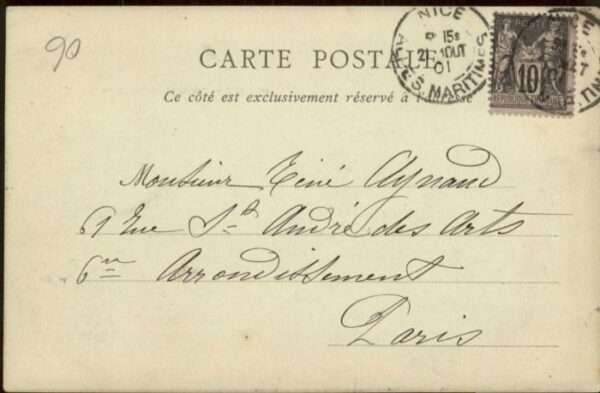 90
NICE
15s
21 AOUT
01
ALPES MARITIMES
POSTE
10
CARTE POSTALE
Ce côté est exclusivement réservé à l'adresse
Monsieur René Aynaud
61 Rue St André des Arts
6me Arrondissement
Paris